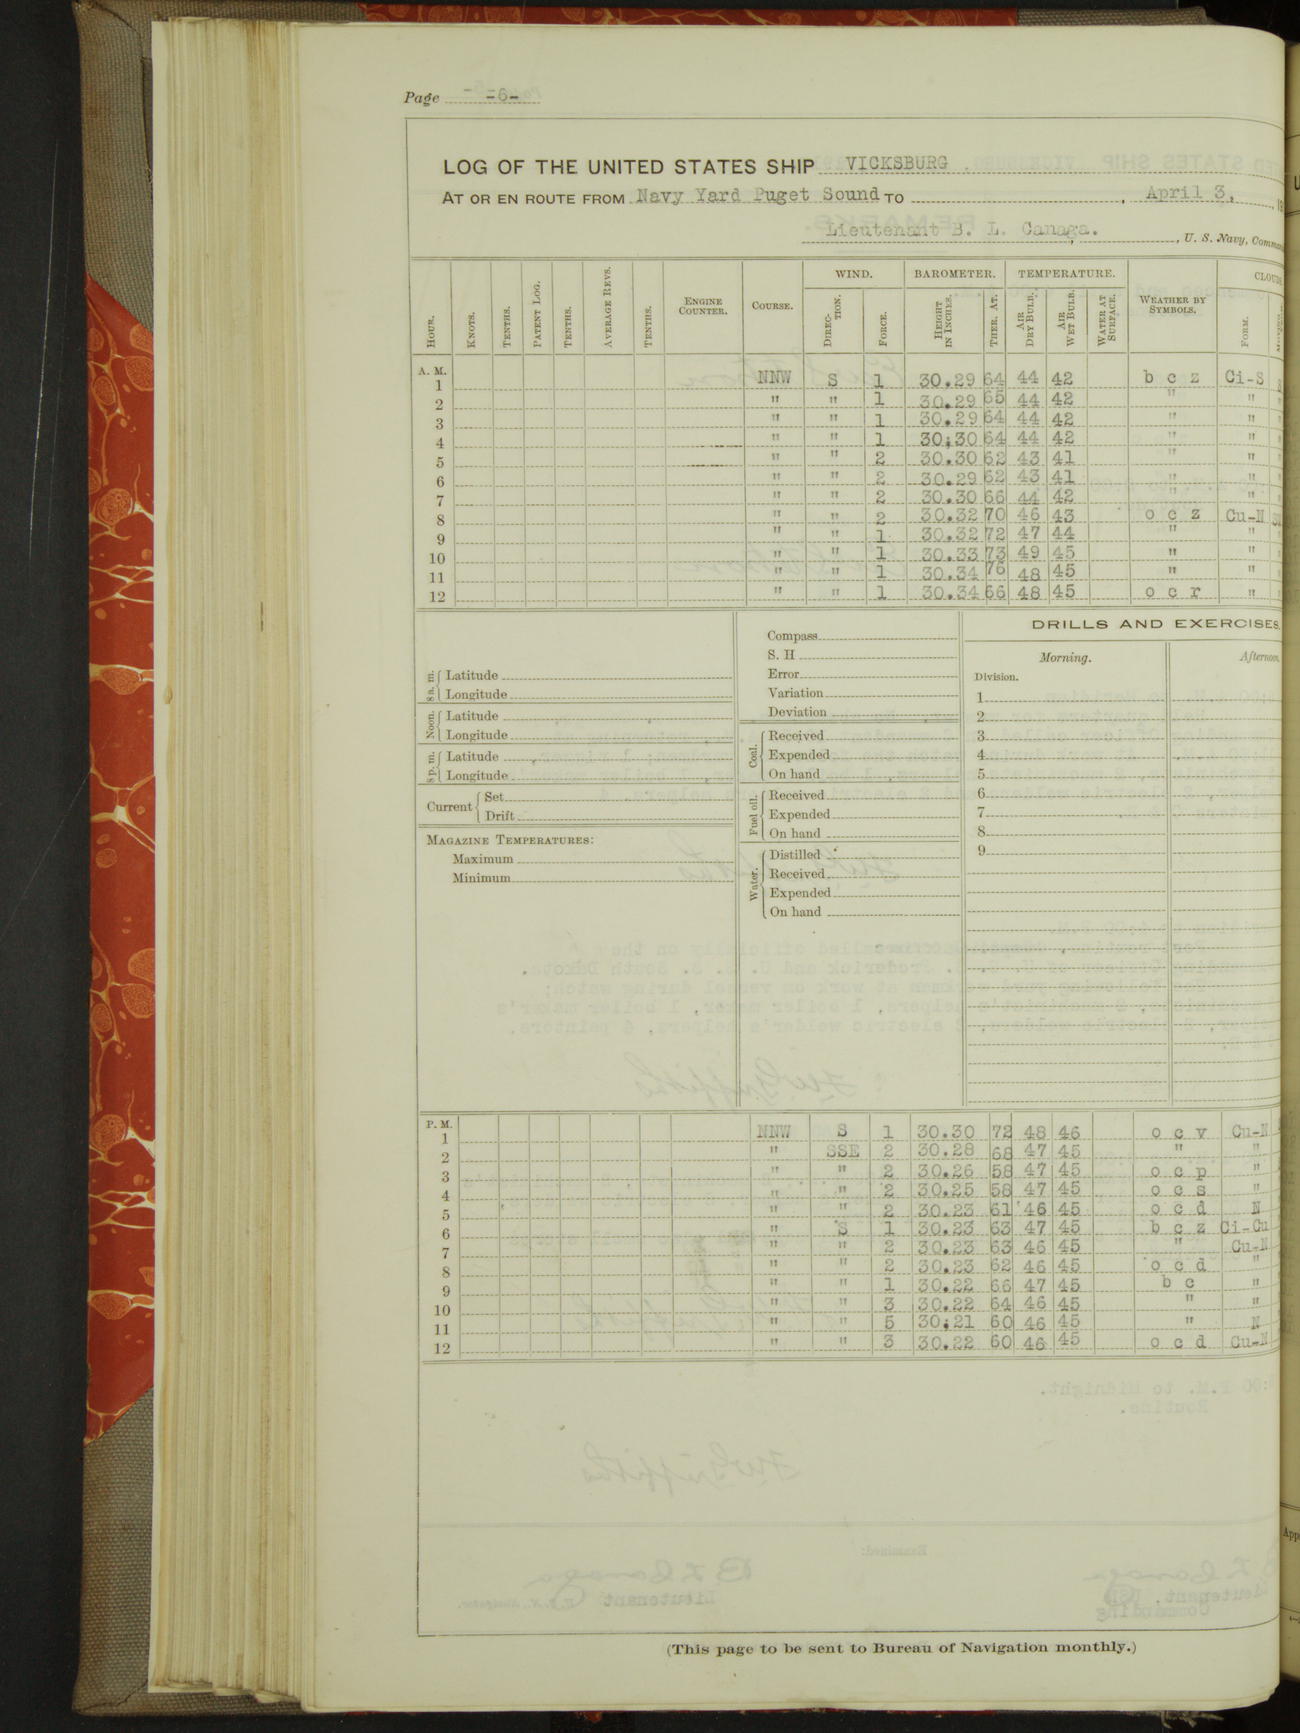 Page -6-
LOG OF THE UNITED STATES SHIP VICKSBURG
AT OR EN ROUTE FROM Navy Yard Puget Sound TO , April 3, 19
Lieutenant B. L. Canaga. , U. S. Navy, Comman
HOUR. KNOTS. TENTHS. PATENT LOG. TENTHS. AVERAGE REVS. TENTHS. ENGINE COUNTER. COURSE. WIND. DIRECTION. FORCE. BAROMETER. HEIGHT IN INCHES. THER. AT. TEMPERATURE. AIR DRY BULB. AIR WET BULB. WATER AT SURFACE. WEATHER BY SYMBOLS. CLOUDS. FORM.
A. M.
1 NNW S 1 30.29 64 44 42 b c z Ci-S
2 " " 1 30.29 65 44 42 " "
3 " " 1 30.29 64 44 42 " "
4 " " 1 30;30 64 44 42 " "
5 " " 2 30.30 62 43 41 " "
6 " " 2 30.29 62 43 41 " "
7 " " 2 30.30 66 44 42 " "
8 " " 2 30.32 70 46 43 o c z Cu-N
9 " " 1 30.32 72 47 44 " "
10 " " 1 30.33 73 49 45 " "
11 " " 1 30.34 76 48 45 " "
12 " " 1 30.34 66 48 45 o c r "
8 a. m. Latitude
Longitude
Noon. Latitude
Longitude
8 p. m. Latitude
Longitude
Current Set
Drift
MAGAZINE TEMPERATURES:
Maximum
Minimum
Compass
S. H
Error
Variation
Deviation
Coal. Received
Expended
On hand
Fuel oil. Received
Expended
On hand
Water. Distilled
Received
Expended
On hand
DRILLS AND EXERCISES.
Morning. Afternoon.
Division.
1
2
3
4
5
6
7
8
9
P. M.
1 NNW S 1 30.30 72 48 46 o c v Cu-N
2 " SSE 2 30.28 68 47 45 " "
3 " " 2 30.26 58 47 45 o c p "
4 " " 2 30.25 58 47 45 o c s "
5 " " 2 30.23 61 46 45 o c d N
6 " S 1 30.23 63 47 45 b c z Ci-Cu
7 " " 2 30.23 63 46 45 " Cu-N
8 " " 2 30.23 62 46 45 o c d "
9 " " 1 30.22 66 47 45 b c "
10 " " 3 30.22 64 46 45 " "
11 " " 5 30;21 60 46 45 " N
12 " " 3 30.22 60 46 45 o c d Cu-N
(This page to be sent to Bureau of Navigation monthly.)